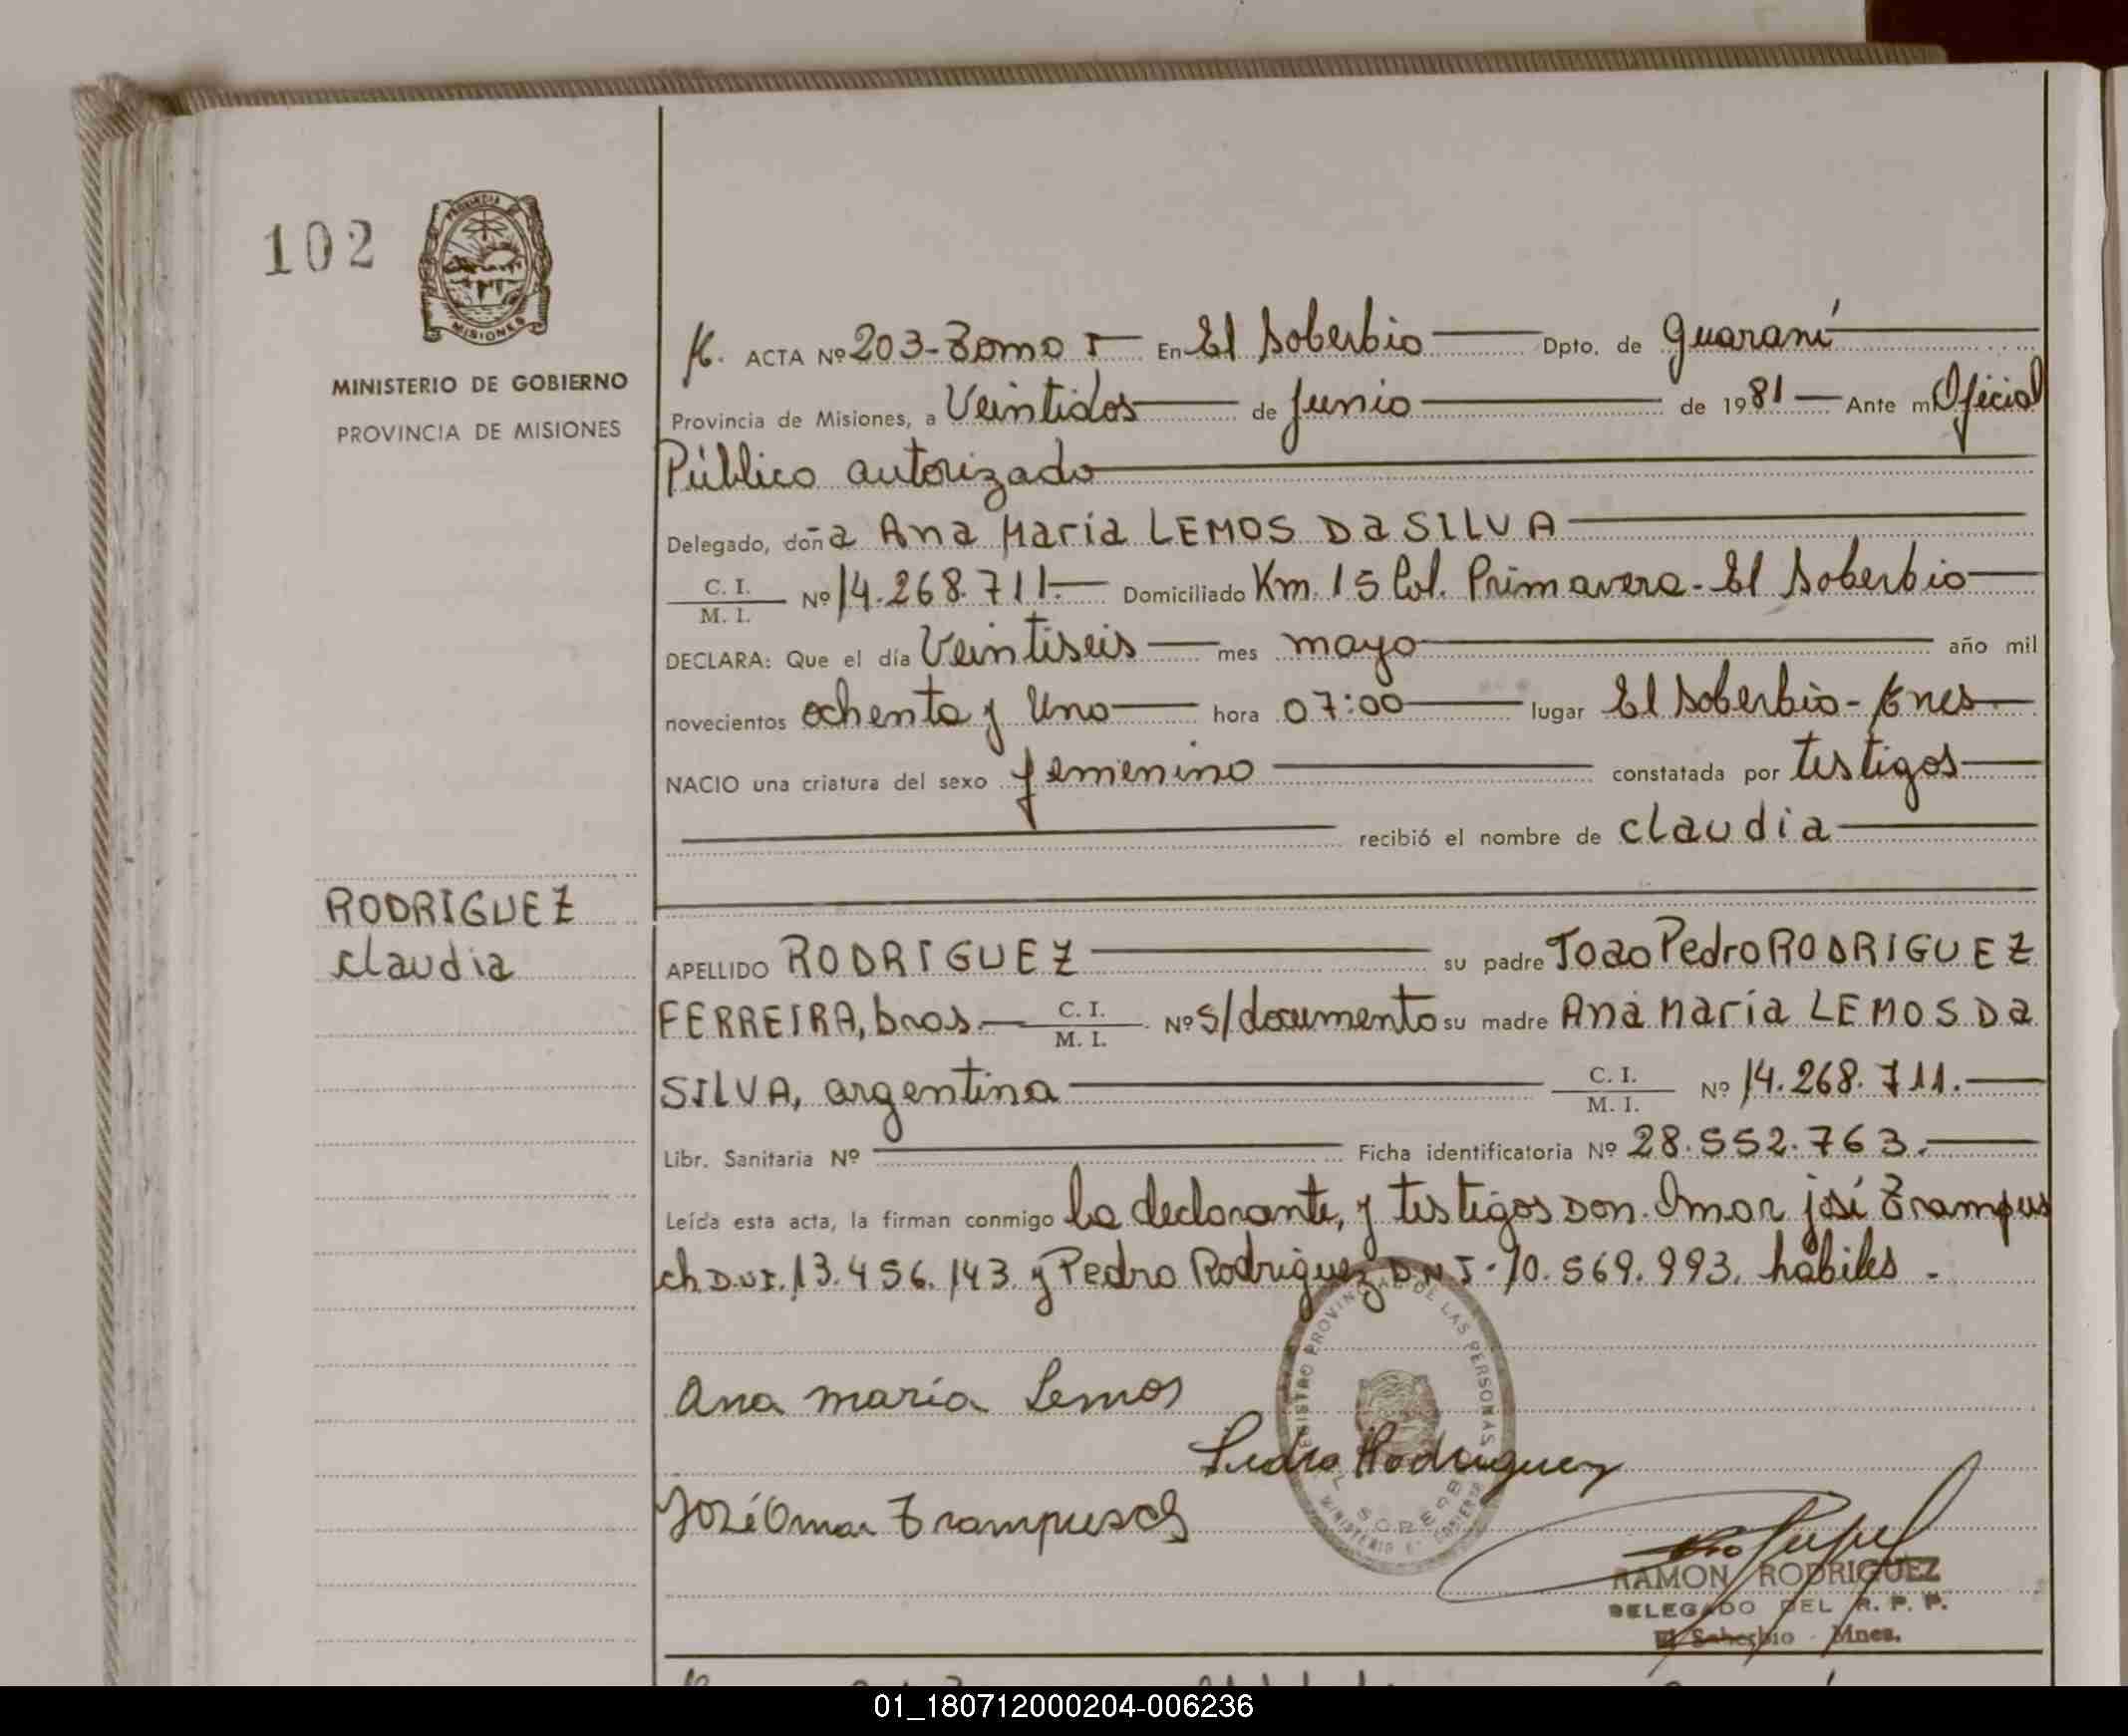 102
PROVINCIA DE
MISIONES
MINISTERIO DE GOBIERNO
PROVINCIA DE MISIONES
RODRIGUEZ
claudia
ACTA Nº 203-Tomo I En El Soberbio Dpto. de Guaraní
Provincia de Misiones, a Veintidos de Junio de 1981 Ante mí Oficial
Público autorizado
Delegado, doña Ana María LEMOS Da SILVA
C. I.
M. I. Nº 14.268.711.- Domiciliado Km. 15 Col. Primavera - El Soberbio
DECLARA: Que el día Veintiseis mes mayo año mil
novecientos ochenta y Uno hora 07:00 lugar El Soberbio -
NACIO una criatura del sexo femenino constatada por testigos
recibió el nombre de claudia
APELLIDO RODRIGUEZ su padre Joao Pedro RODRIGUEZ
FERREIRA, bras. C. I. M. I. Nº S/documento su madre Ana María LEMOS Da
SILVA, argentina C. I. M. I. Nº 14.268.711.
Libr. Sanitaria Nº Ficha identificatoria Nº 28.552.763.
Leída esta acta, la firman conmigo La declarante, y testigos Don. Omar josé Trampus
ch D.N.I. 13.456.143 y Pedro Rodriguez D N I - 10.569.993. hábiles.
REGISTRO PROVINCIAL DE LAS PERSONAS
EL SOBERBIO
MINISTERIO DE GOBIERNO
Ana maría Lemos
Pedro Rodriguez
José Omar Trampusch
RAMON RODRIGUEZ
DELEGADO DEL R. P. P.
El Soberbio - Mnes.
01_180712000204-006236